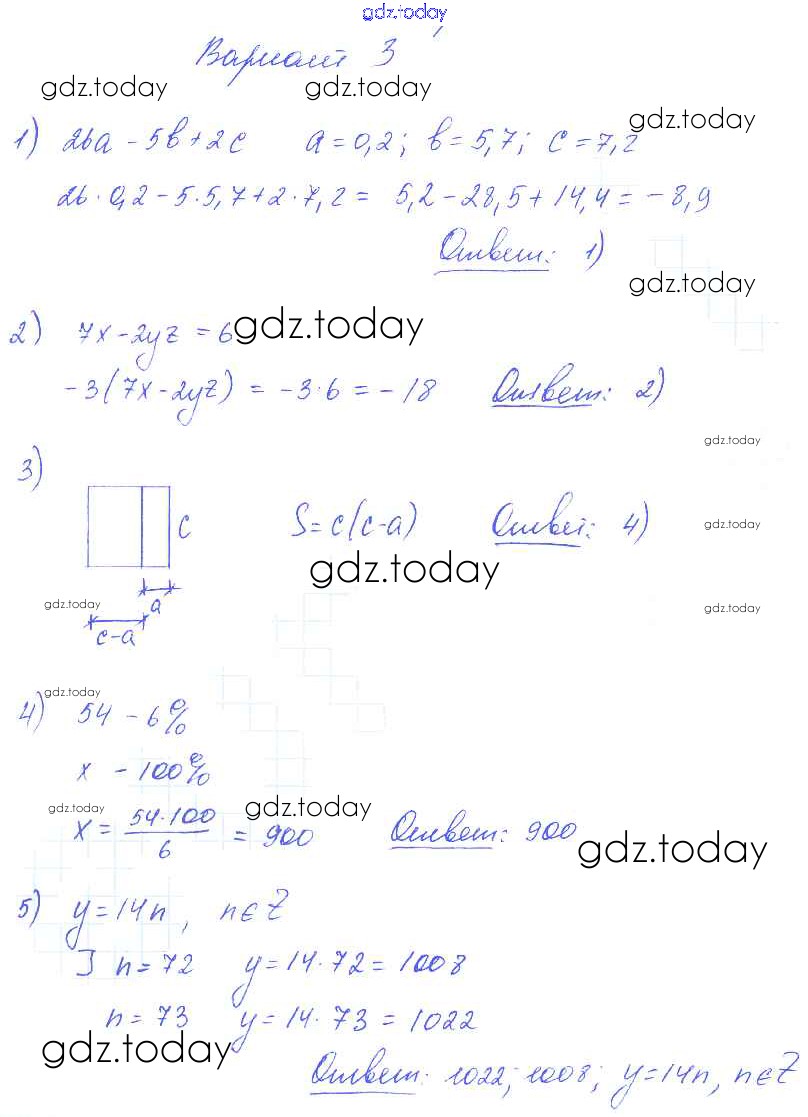 gdz.today
Вариант 3
gdz.today gdz.today
gdz.today
1) 26a - 5b + 2c a = 0,2; b = 5,7; c = 7,2
26 · 0,2 - 5 · 5,7 + 2 · 7,2 = 5,2 - 28,5 + 14,4 = -8,9
Ответ: 1)
gdz.today
2) 7x - 2yz = 6 gdz.today
-3(7x - 2yz) = -3·6 = -18 Ответ: 2)
gdz.today
3)
c S = c(c-a) Ответ: 4)
gdz.today
gdz.today
a
gdz.today
gdz.today
c-a
gdz.today
4) 54 - 6%
x - 100%
gdz.today gdz.today
x = 54·100/6 = 900 Ответ: 900
gdz.today
5) y = 14n, n∈Z
] n = 72 y = 14·72 = 1008
n = 73 y = 14·73 = 1022
gdz.today
Ответ: 1022; 1008; y = 14n, n∈Z